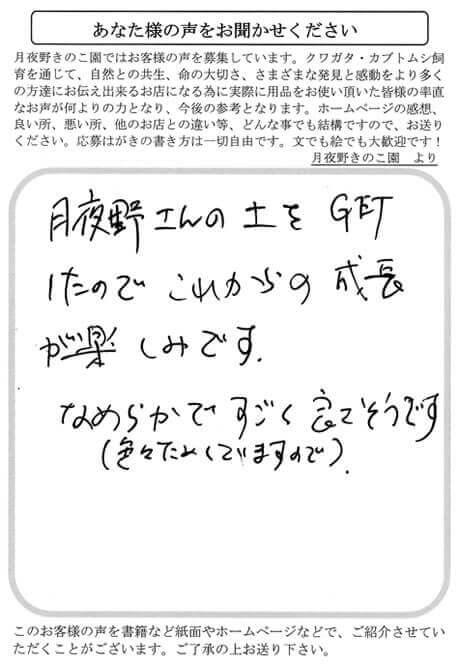 あなた様の声をお聞かせください
月夜野きのこ園ではお客様の声を募集しています。クワガタ・カブトムシ飼
育を通じて、自然との共生、命の大切さ、さまざまな発見と感動をより多く
の方達にお伝え出来るお店になる為に実際に用品をお使い頂いた皆様の率直
なお声が何よりの力となり、今後の参考となります。ホームページの感想、
良い所、悪い所、他のお店との違い等、どんな事でも結構ですので、お送り
ください。応募はがきの書き方は一切自由です。文でも絵でも大歓迎です！
月夜野きのこ園　より
月夜野さんの土を GET
したので これからの 成長
が楽しみです.
なめらかで すごく 良さそうです
(色々ためしてますので).
このお客様の声を書籍など紙面やホームページなどで、ご紹介させてい
ただくことがございます。ご了承の上お送り下さい。